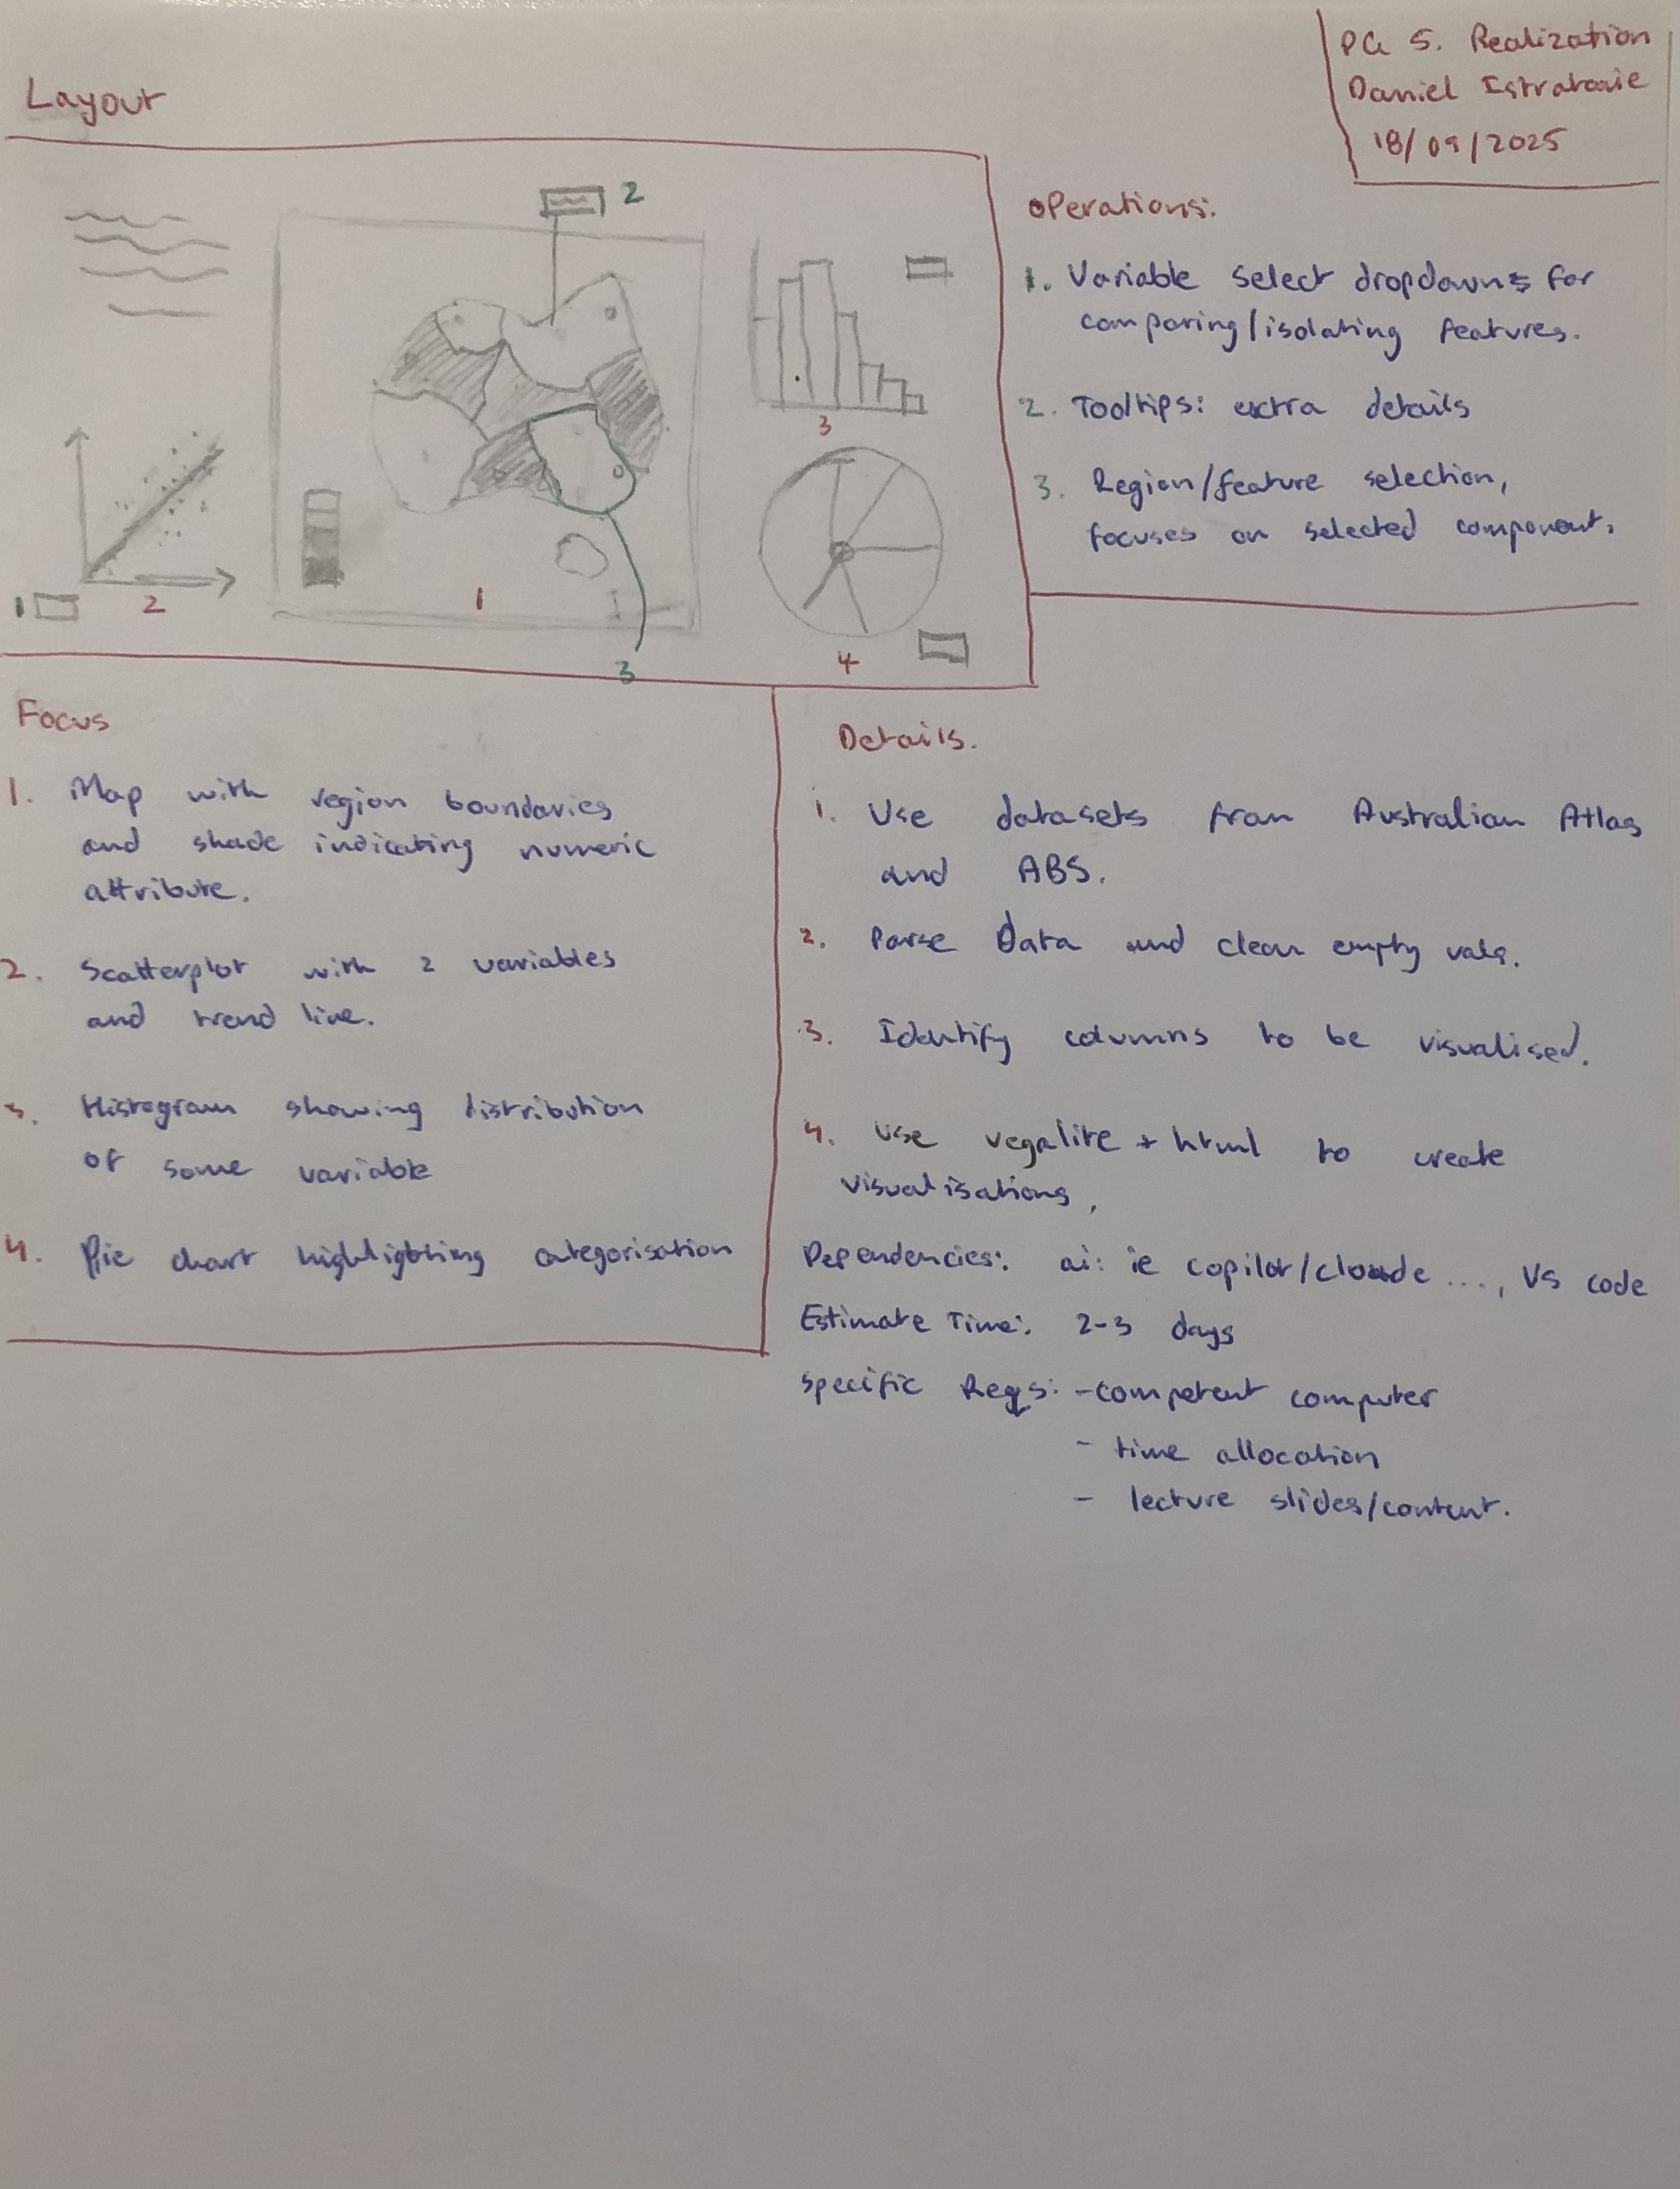 PG 5. Realization
Daniel
18/09/2025
Layout
2
1
2
1
3
3
4
Operations:
1. Variable select dropdowns for
comparing/isolating features.
2. Tooltips: extra details
3. Region/feature selection,
focuses on selected component.
Focus
1. Map with region boundaries
and shade indicating numeric
attribute.
2. Scatterplot with 2 variables
and trend line.
3. Histogram showing distribution
of some variable
4. Pie chart highlighting categorisation
Details.
1. Use datasets from Australian Atlas
and ABS.
2. Parse Data and clean empty vals.
3. Identify columns to be visualised.
4. Use vegalite + html to create
visualisations,
Dependencies: ai: ie copilot/claude ..., VS code
Estimate Time: 2-3 days
Specific Reqs: - competent computer
- time allocation
- lecture slides/content.